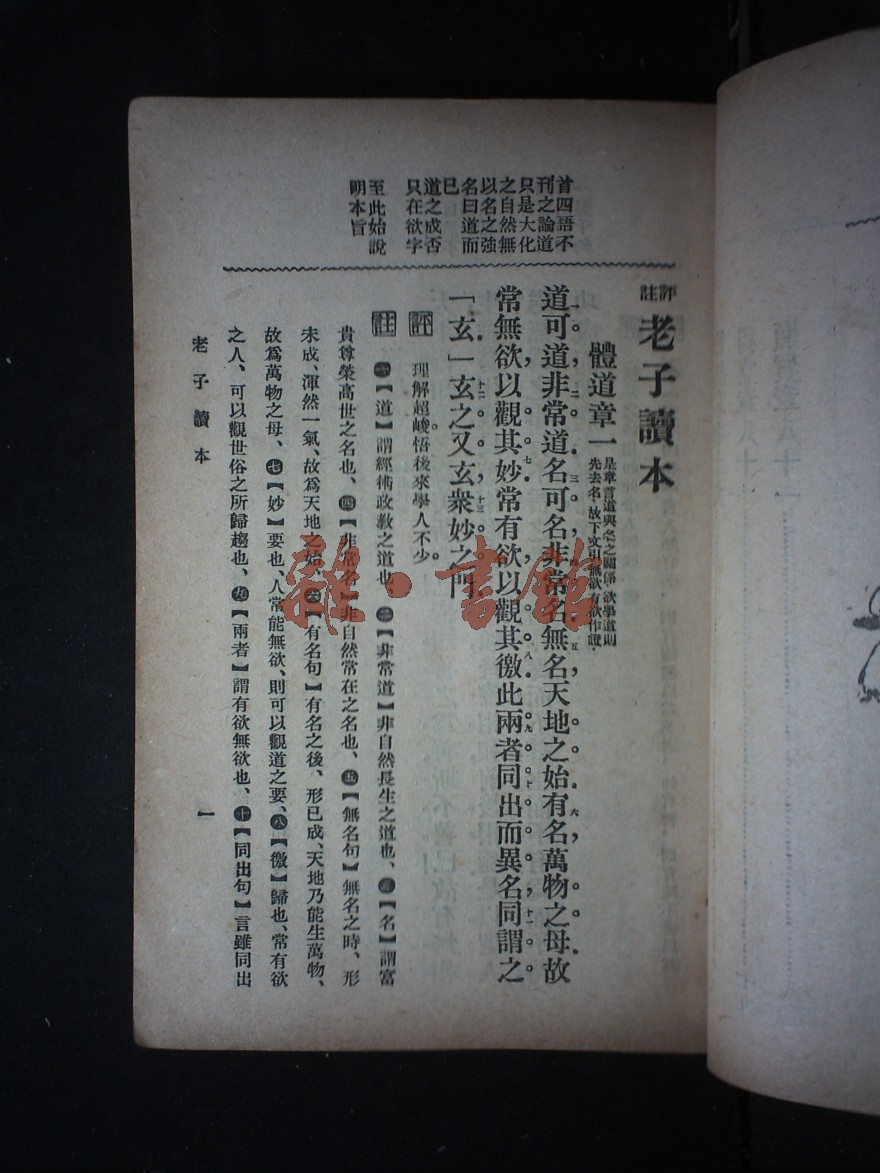 評註老子讀本
體道章一
是章言道與名之關係欲學道則
先去名故下文引無欲有欲作證
首四語不
刊之論道
只是大化
之自然無
以名之強
名曰道而
已
道之成否
只在欲字
至此始說
明本旨
道可道非常道名可名非常名無名天地之始有名萬物之母故
常無欲以觀其妙常有欲以觀其徼此兩者同出而異名同謂之
「玄」玄之又玄衆妙之門
評 理解超峻悟後來學人不少
註 一【道】謂經術政教之道也、二【非常道】非自然長生之道也、三【名】謂富
貴尊榮高世之名也、四【非常名】非自然常在之名也、五【無名句】無名之時、形
未成、渾然一氣、故爲天地之始、六【有名句】有名之後、形已成、天地乃能生萬物、
故爲萬物之母、七【妙】要也、人常能無欲、則可以觀道之要、八【徼】歸也、常有欲
之人、可以觀世俗之所歸趨也、九【兩者】謂有欲無欲也、十【同出句】言雖同出
老子讀本 一
雜·書館